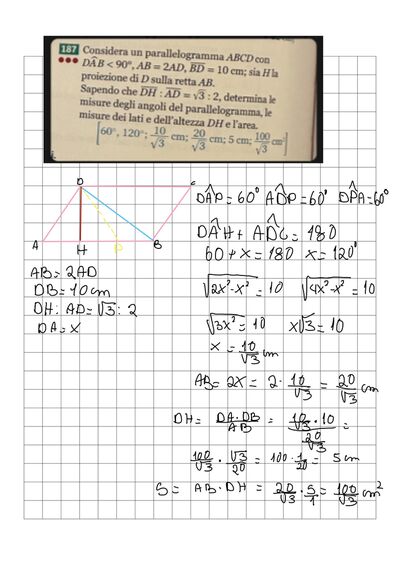 187 Considera un parallelogramma ABCD con
DÂB < 90°, AB = 2AD, BD = 10 cm; sia H la
proiezione di D sulla retta AB.
Sapendo che DH : AD = √3 : 2, determina le
misure degli angoli del parallelogramma, le
misure dei lati e dell'altezza DH e l'area.
[60°, 120°; 10/√3 cm; 20/√3 cm; 5 cm; 100/√3 cm²]
D
C
A H P B
AB = 2AD
DB = 10 cm
DH: AD = √3 : 2
DA = X
DÂP = 60° AD̂P = 60° DP̂A = 60°
DÂH + AD̂C = 180
60 + x = 180 x = 120°
√2x²-x² = 10 √4x²-x² = 10
√3x² = 10 x√3 = 10
x = 10/√3 cm
AB = 2X = 2 · 10/√3 = 20/√3 cm
DH = DA · DB / AB = 10/√3 · 10 / 20/√3 =
100/√3 · √3/20 = 100 · 1/20 = 5 cm
S = AB · DH = 20/√3 · 5/1 = 100/√3 cm²